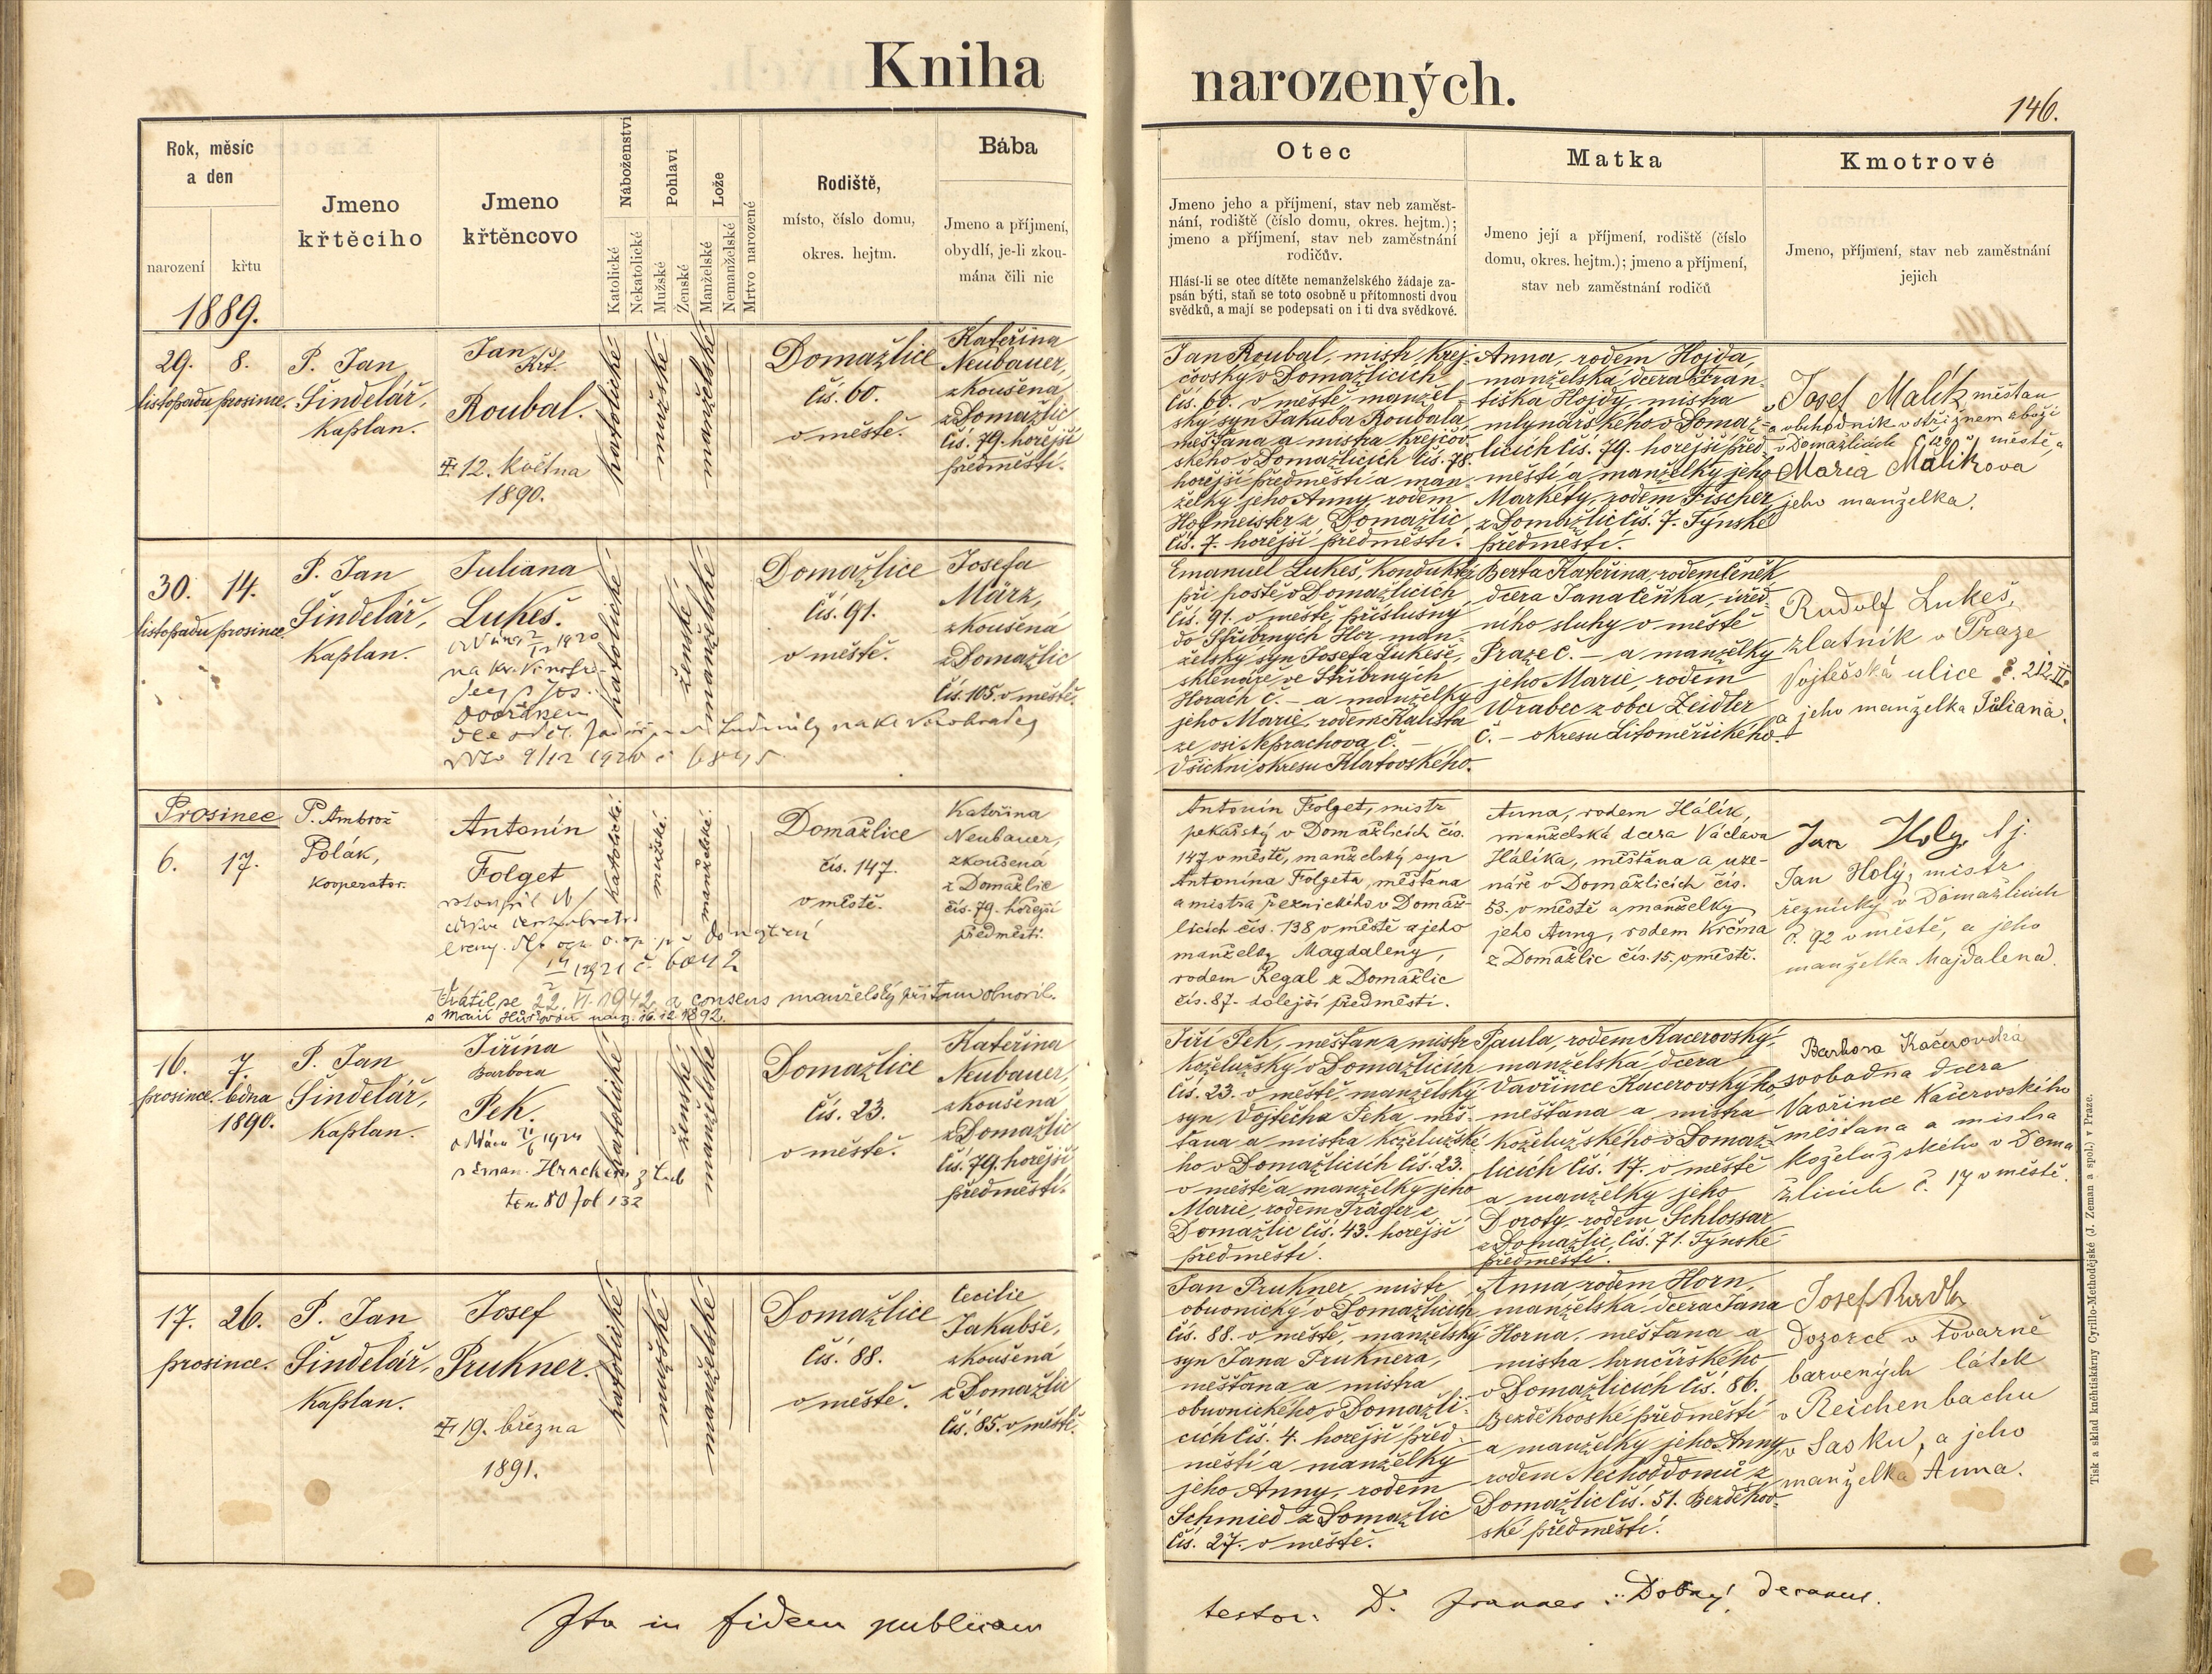 Kniha
narozených.
146.
Rok, měsíc
a den
narození
křtu
1889.
Jmeno
křtěcího
Jmeno
křtěncovo
Náboženství
Katolické
Nekatolické
Pohlaví
Mužské
Ženské
Lože
Manželské
Nemanželské
Mrtvo narozené
Rodiště,
místo, číslo domu,
okres. hejtm.
Bába
Jmeno a příjmení,
obydlí, je-li zkou-
mána čili nic
Otec
Jmeno jeho a příjmení, stav neb zaměst-
nání, rodiště (číslo domu, okres. hejtm.);
jmeno a příjmení, stav neb zaměstnání
rodičův.
Hlásí-li se otec dítěte nemanželského žádaje za-
psán býti, staň se toto osobně u přítomnosti dvou
svědků, a mají se podepsati on i ti dva svědkové.
Matka
Jmeno její a příjmení, rodiště (číslo
domu, okres. hejtm.); jmeno a příjmení,
stav neb zaměstnání rodičů
Kmotrové
Jmeno, příjmení, stav neb zaměstnání
jejich
29.
listopadu
8.
prosince.
P. Jan
Šindelář,
kaplan.
Jan
Křt.
Roubal.
12. května
1890.
katolické
mužské
manželské
Domažlice
čís. 60.
v městě.
Kateřina
Neubauer,
zkoušená
z Domažlic
čís. 79. hořejší
předměstí.
Jan Roubal, mistr krej-
čovský v Domažlicích
čís. 60. v městě, manžel-
ský syn Jakuba Roubala
měšťana a mistra krejčov-
ského v Domažlicích čís. 78.
hořejší předměstí a man-
želky jeho Anny rodem
Hofmeister z Domažlic
čís. 7. hořejší předměstí.
Anna, rodem Hojda,
manželská dcera Fran-
tiška Hojdy, mistra
mlynářského v Domaž-
licích čís. 79. hořejší před-
městí a manželky jeho
Markéty, rodem Fischer
z Domažlic čís. 7. Týnské
předměstí.
Josef Malík měšťan
a obchodník v střižném zboží
v Domažlicích č. 120 v městě, a
Maria Malíkova
jeho manželka.
30.
listopadu
14.
prosince.
P. Jan
Šindelář,
kaplan.
Juliana
Lukeš.
1920
na Kr. Vinohra-
dech s Jos.
Dvořákem
Ludmily na Kr. Vinohradech
9/12 1920
katolické
ženské
manželské
Domažlice
čís. 91.
v městě.
Josefa
März,
zkoušená
z Domažlic
čís. 105. v městě.
Emanuel Lukeš, konduktér
při poště v Domažlicích
čís. 91. v městě, příslušný
do Stříbrných Hor, man-
želský syn Josefa Lukeše,
sklenáře ve Stříbrných
Horách č. – a manželky
jeho Marie, rodem Kališta
ze vsi Neprachova č. –
všichni okresu Klatovského.
Berta Kateřina, rodem Čeněk
dcera Jana Čeňka, úřed-
ního sluhy v městě
Praze č. – a manželky
jeho Marie, rodem
Wrabec z obce Zeidler
č. – okresu Litoměřického.
Rudolf Lukeš,
zlatník v Praze
Vojtěšská ulice č. 212.II.
a jeho manželka Juliana.
Prosinec
6.
17.
P. Ambrož
Polák,
kooperator.
Antonín
Folget
1921 č. 6042
Vrátil se 22. VI. 1942 a consens manželský při tom obnovil.
s Marií narz. 16.12.1892.
katolické
mužské
manželské
Domažlice
čís. 147.
v městě.
Kateřina
Neubauer,
zkoušená
z Domažlic
čís. 79. hořejší
předměstí.
Antonín Folget, mistr
pekařský v Domažlicích čís.
147 v městě, manželský syn
Antonína Folgeta, měšťana
a mistra řeznického v Domaž-
licích čís. 138 v městě a jeho
manželky Magdaleny,
rodem Regal z Domažlic
čís. 87. dolejší předměstí.
Anna, rodem Hálík,
manželská dcera Václava
Hálíka, měšťana a uze-
náře v Domažlicích čís.
53. v městě a manželky
jeho Anny, rodem Krčma
z Domažlic čís. 15. v městě.
Jan Holy, tj.
Jan Holý, mistr
řeznický v Domažlicích
č. 92 v městě, a jeho
manželka Majdalena.
16.
prosince.
7.
ledna
1890.
P. Jan
Šindelář,
kaplan.
Jiřina
Barbora
Pek.
1924
s Eman. Hrachem
tom. 80 fol 132
katolické
ženské
manželské
Domažlice
čís. 23.
v městě.
Kateřina
Neubauer,
zkoušená
z Domažlic
čís. 79. hořejší
předměstí.
Jiří Pek, měšťan a mistr
koželužský v Domažlicích
čís. 23. v městě, manželský
syn Vojtěcha Peka, měš-
ťana a mistra koželužské-
ho v Domažlicích čís. 23.
v městě a manželky jeho
Marie, rodem Träger z
Domažlic čís. 43. hořejší
předměstí.
Paula, rodem Kacerovský,
manželská dcera
Vavřince Kacerovského,
měšťana a mistra
koželužského v Domaž-
licích čís. 17. v městě
a manželky jeho
Doroty, rodem Schlossar
z Domažlic, čís. 71. Týnské
předměstí.
Barbora Kačerovská
svobodna dcera
Vavřince Kačerovského
měšťana a mistra
koželužského v Doma
žlicích č. 17 v městě.
17.
26.
prosince.
P. Jan
Šindelář,
kaplan.
Josef
Prukner.
19. března
1891.
katolické
mužské
manželské
Domažlice
čís. 88.
v městě.
Cecilie
Jakubše,
zkoušená
z Domažlic
čís. 85. v městě.
Jan Prukner, mistr
obuvnický v Domažlicích
čís. 88. v městě, manželský
syn Jana Pruknera,
měšťana a mistra
obuvnického v Domažli-
cích čís. 4. hořejší před-
městí a manželky
jeho Anny, rodem
Schmied z Domažlic
čís. 27. v městě.
Anna rodem Horn,
manželská dcera Jana
Horna, měšťana a
mistra hrnčířského
v Domažlicích čís. 86.
Bezděkovské předměstí
a manželky jeho Anny,
rodem Nechoďdomů z
Domažlic čís. 51. Bezděkov-
ské předměstí.
Josef Radl
Dozorce v továrně
barvených látek
v Reichenbachu
v Sasku, a jeho
manželka Anna.
Tisk a sklad knihtiskárny Cyrillo-Methodějské (J. Zeman a spol.) v Praze.
Ita in fidem publicam
testor: Dobrý, decanus.